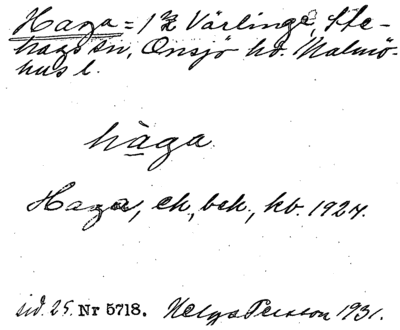 Haga = 1 24 Värlinge, Ste-
hags sn, Onsjö hd. Malmö-
hus l.
hàga
Haga, ek, bck, kb. 1924.
sid. 25. Nr 5718. Helge Persson 1931.